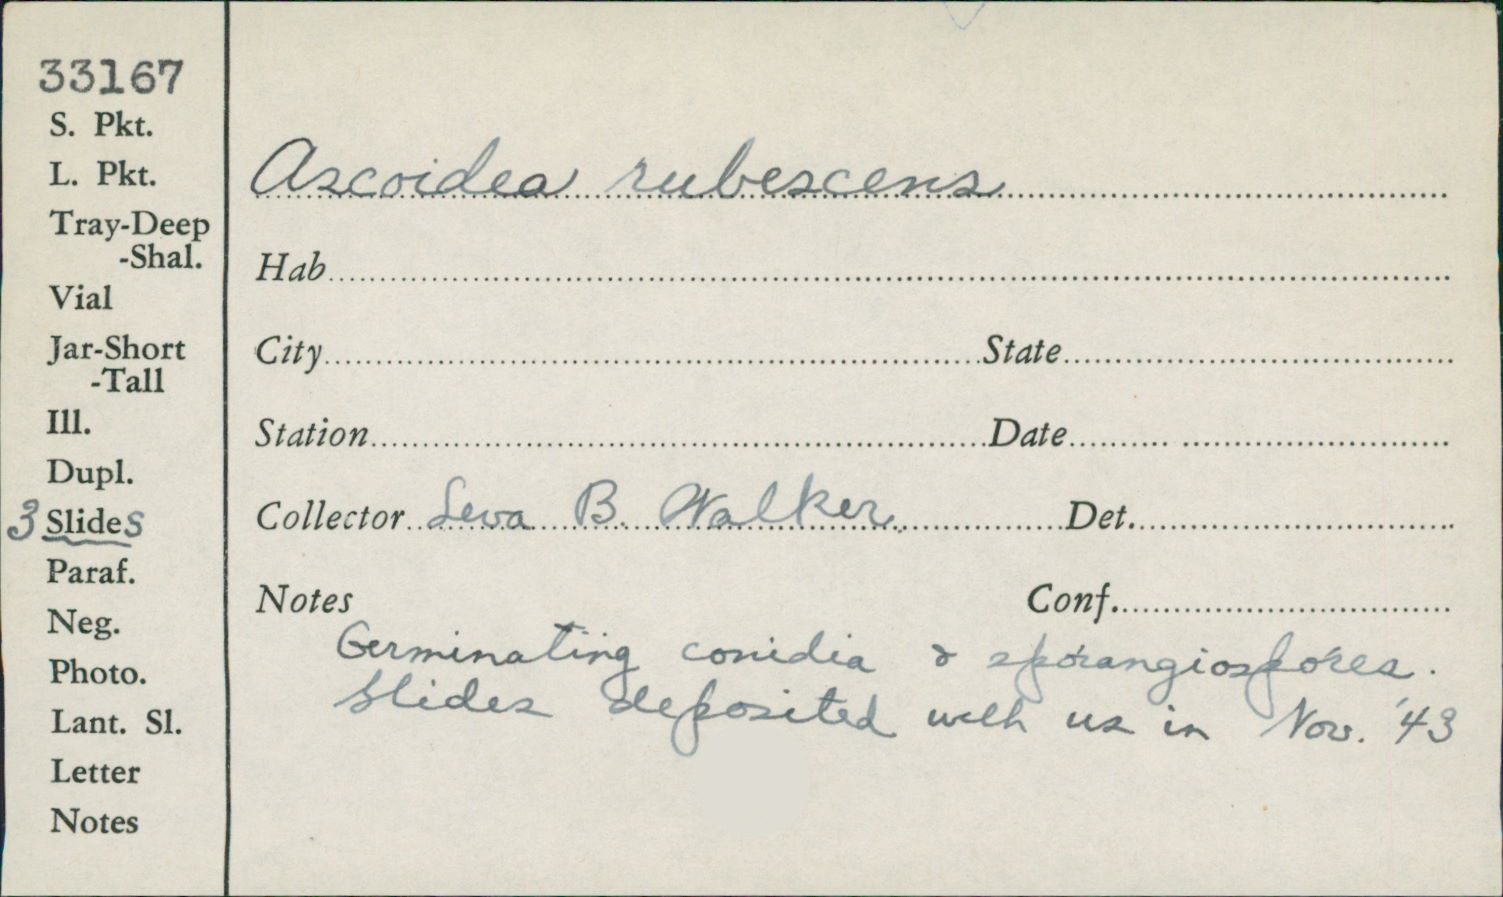 33167
S. Pkt.
L. Pkt.
Tray-Deep
-Shal.
Vial
Jar-Short
-Tall
Ill.
Dupl.
3 Slides
Paraf.
Neg.
Photo.
Lant. Sl.
Letter
Notes
Ascoidea rubescens
Hab
City State
Station Date
Collector Leva B. Walker. Det.
Notes Conf.
Germinating conidia & sporangiospores.
Slides deposited with us in Nov. '43